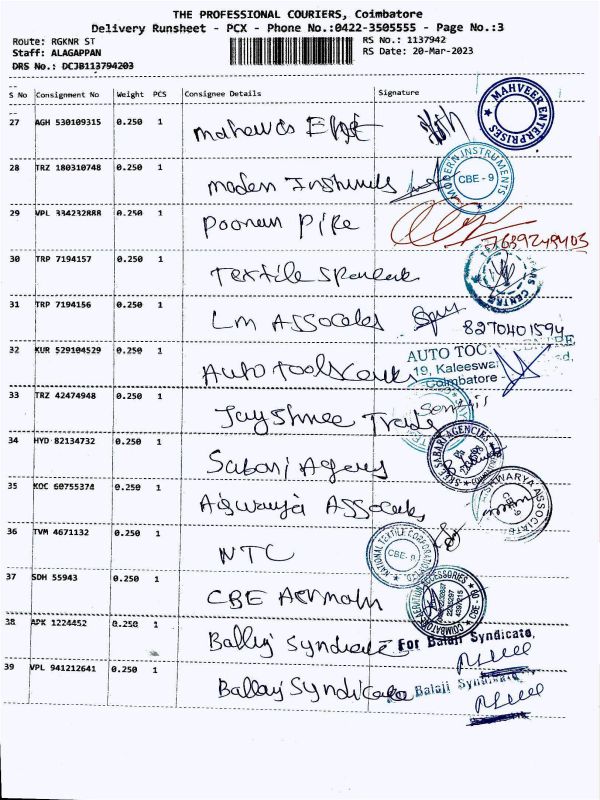 THE PROFESSIONAL COURIERS, Coimbatore
Delivery Runsheet - PCX - Phone No.:0422-3505555 - Page No.:3
Route: RGKNR ST RS No.: 1137942
Staff: ALAGAPPAN RS Date: 20-Mar-2023
DRS No.: DCJB113794203
S No Consignment No Weight PCS Consignee Details Signature
27 AGH 530109315 0.250 1 MAHVEER ENTERPRISES
28 TRZ 180310748 0.250 1 MODERN INSTRUMENTS CBE - 9
29 VPL 334232888 0.250 1 Poonam Pipe
7639249403
30 TRP 7194157 0.250 1 Textile CENTRE
31 TRP 7194156 0.250 1 LM Assocates
8270401594
32 KUR 529104529 0.250 1 Auto Tools AUTO TOO CENTRE
19, Kaleeswa
Coimbatore -
33 TRZ 42474948 0.250 1 Jayshree Trade
34 HYD 82134732 0.250 1 Sabari SREE SABARI AGENCIES
35 KOC 60755374 0.250 1 Aiswarya Assocats AISHWARYA ASSOCIATES CBE-9
36 TVM 4671132 0.250 1 NTC NATIONAL TEXTILE CORPORATION CBE-9
37 SDH 55943 0.250 1 CBE COIMBATORE ACCESSORIES CBE-09
38 APK 1224452 0.250 1 Ballaji Syndicate For Balaji Syndicate,
39 VPL 941212641 0.250 1 Ballaji Syndicate Balaji Syndicate